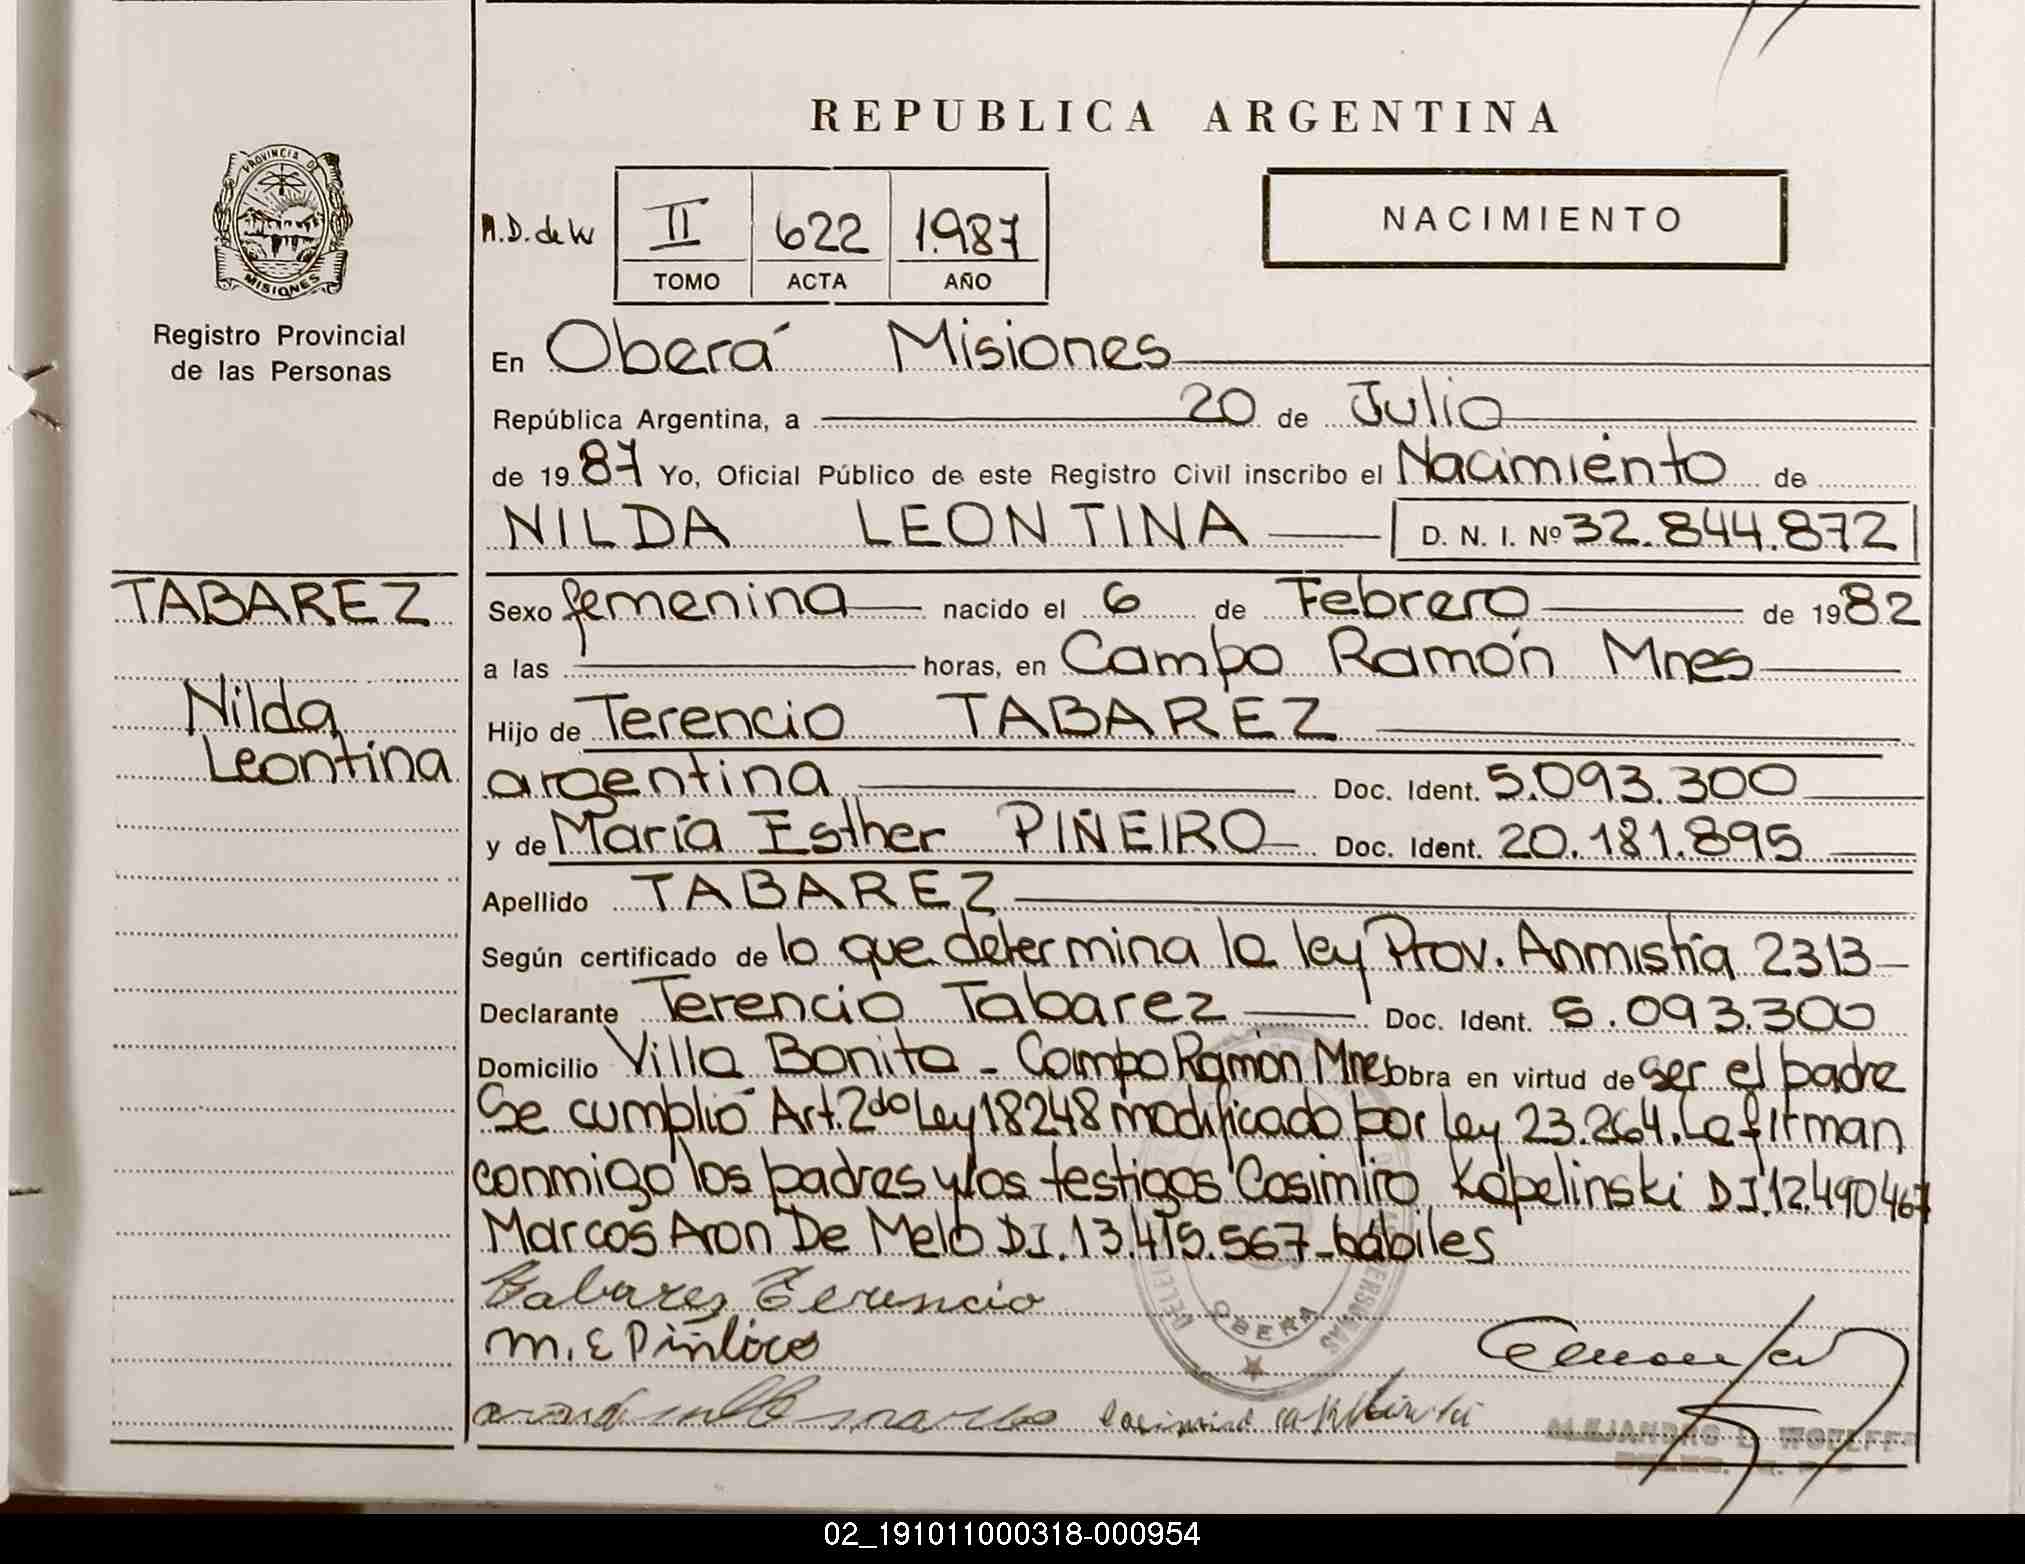 REPUBLICA ARGENTINA
PROVINCIA DE
MISIONES
Registro Provincial
de las Personas
M.D. de W
II 622 1.987
TOMO ACTA AÑO
NACIMIENTO
En Oberá Misiones
República Argentina, a 20 de Julio
de 1987 Yo, Oficial Público de este Registro Civil inscribo el Nacimiento de
NILDA LEONTINA D. N. I. Nº 32.844.872
TABAREZ
Nilda
Leontina
Sexo femenina nacido el 6 de Febrero de 1982
a las horas, en Campo Ramón Mnes
Hijo de Terencio TABAREZ
argentina Doc. Ident. 5.093.300
y de María Esther PIÑEIRO Doc. Ident. 20.181.895
Apellido TABAREZ
Según certificado de lo que determina la ley Prov. Anmistía 2313
Declarante Terencio Tabarez Doc. Ident. 5.093.300
Domicilio Villa Bonita - Campo Ramón Mnes obra en virtud de ser el padre
Se cumplió Art. 2do Ley 18248 modificado por ley 23.264. La firman
conmigo los padres y los testigos Casimiro Kapelinski DI. 12.490467
Marcos Aron De Melo DI. 13.415.567 - hábiles
Tabarez Terencio
M. E Piñeiro
OBERA
ALEJANDRO
02_191011000318-000954